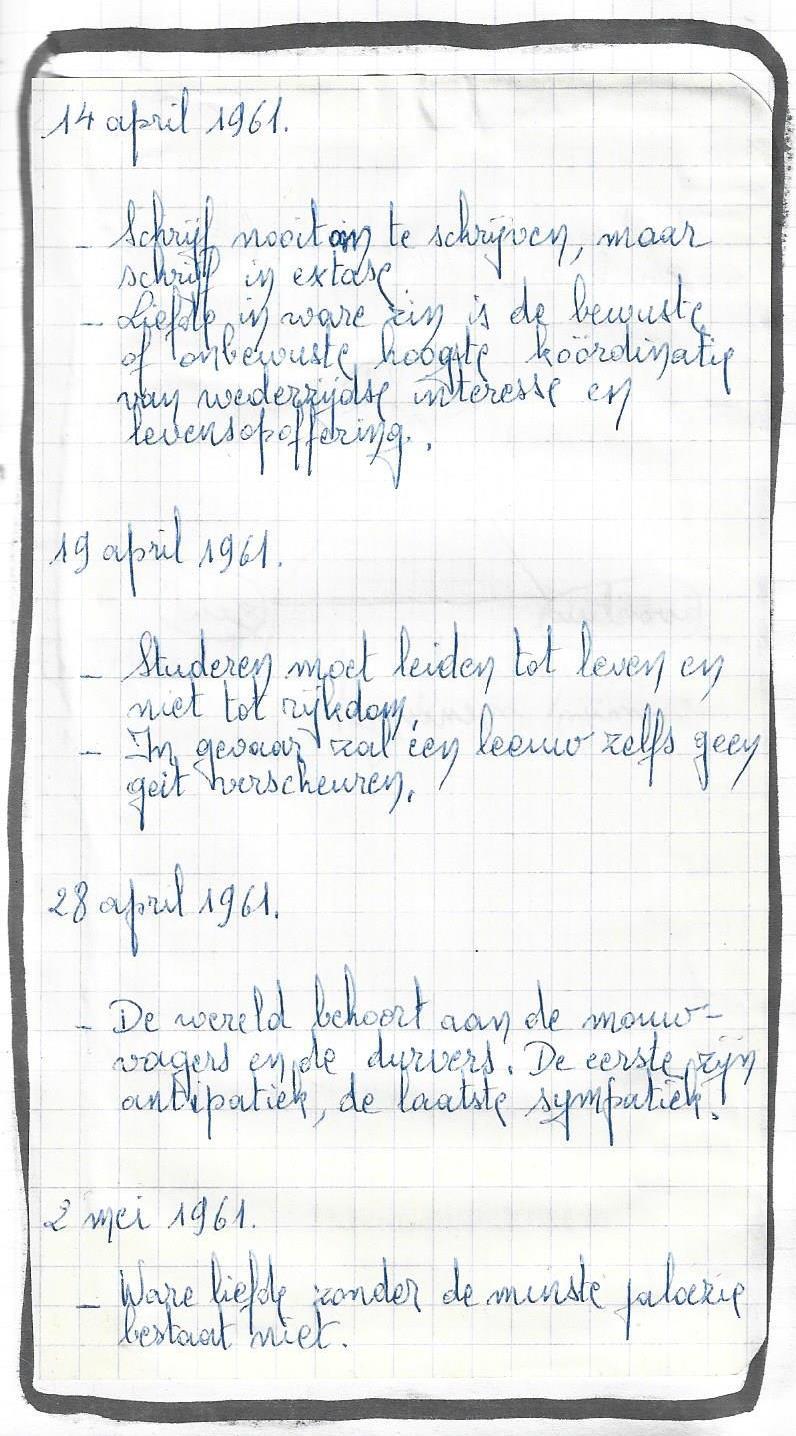 14 april 1961.
- Schrijf nooit om te schrijven, maar
schrijf in extase
- Liefde in ware zin is de bewuste
of onbewuste hoogste koördinatie
van wederzijdse interesse en
levensopoffering.
19 april 1961.
- Studeren moet leiden tot leven en
niet tot rijkdom.
- In gevaar zal een leeuw zelfs geen
geit verscheuren.
28 april 1961.
- De wereld behoort aan de mouw-
vagers en de durvers. De eerste zijn
antipatiek, de laatste sympatiek.
2 mei 1961.
- Ware liefde zonder de minste jaloezie
bestaat niet.